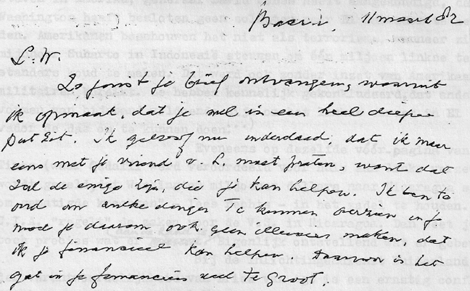 Baarn, 11 maart 82
L.W.
Zo juist je brief ontvangen, waaruit
ik opmaak, dat je wel in een heel diepe
put zit. Ik geloof nu inderdaad, dat ik maar
eens met je vriend v. L. moet praten, want dat
zal de enige zijn, die je kan helpen. Ik ben te
oud om welke dingen te kunnen overzien en je
moet je daarom ook geen illusies maken, dat
ik je financieel kan helpen. Daarvoor is het
gat in je financiën veel te groot.